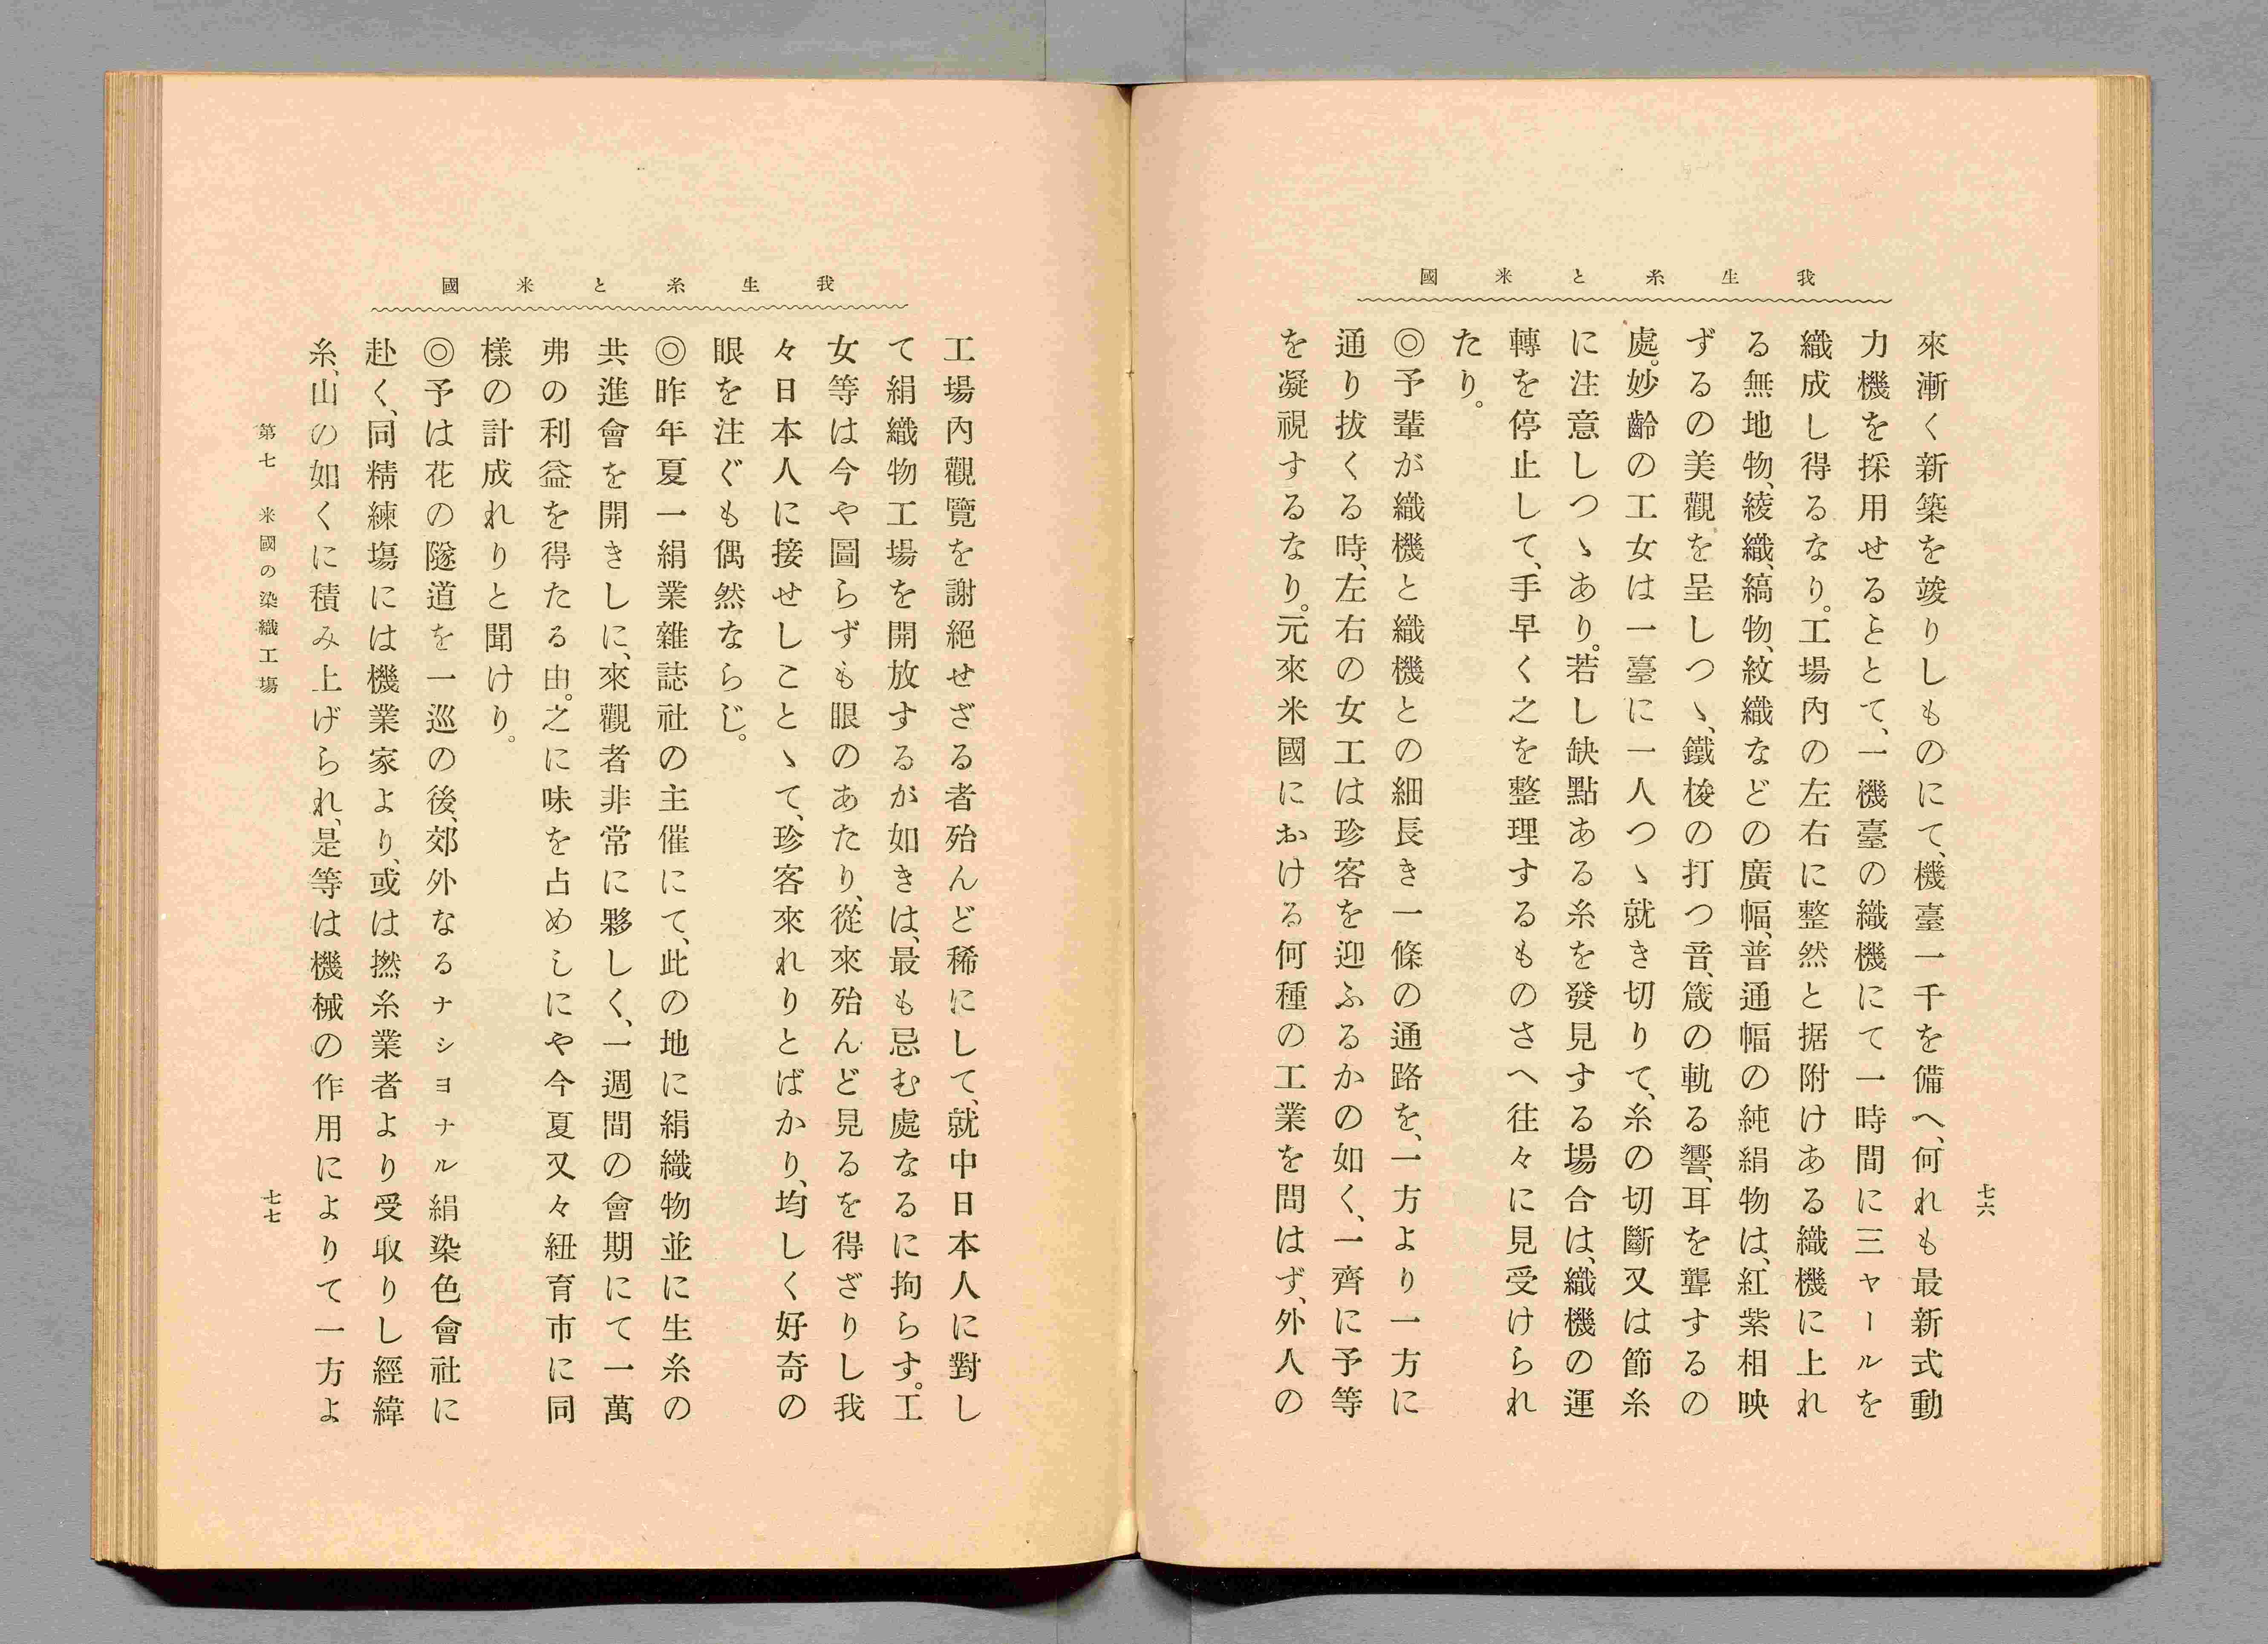 我生糸と米國
來漸く新築を竣りしものにて、機臺一千を備へ、何れも最新式動
力機を採用せるとことて、一機臺の織機にて一時間に三ヤールを
織成し得るなり。工場內の左右に整然と据附けある織機に上れ
る無地物、綾織、縞物、紋織などの廣幅、普通幅の純絹物は、紅紫相映
ずるの美觀を呈しつゝ、鐵梭の打つ音、箴の軌る響、耳を聾するの
處。妙齡の工女は一臺に一人つゝ就き切りて、糸の切斷又は節糸
に注意しつゝあり。若し缺點ある糸を發見する場合は、織機の運
轉を停止して、手早く之を整理するものさへ往々に見受けられ
たり。
◎予輩が織機と織機との細長き一條の通路を、一方より一方に
通り拔くる時、左右の女工は珍客を迎ふるかの如く、一齊に予等
を凝視するなり。元來米國における何種の工業を問はず、外人の
七六
我生糸と米國
工場內觀覽を謝絕せざる者殆んど稀にして、就中日本人に對し
て絹織物工場を開放するが如きは、最も忌む處なるに拘らす。工
女等は今や圖らずも眼のあたり、從來殆んど見るを得ざりし我
々日本人に接せしことゝて、珍客來れりとばかり、均しく好奇の
眼を注ぐも偶然ならじ。
◎昨年夏一絹業雜誌社の主催にて、此の地に絹織物並に生糸の
共進會を開きしに、來觀者非常に夥しく、一週間の會期にて一萬
弗の利益を得たる由。之に味を占めしにや今夏又々紐育市に同
樣の計成れりと聞けり。
◎予は花の隧道を一巡の後、郊外なるナショナル絹染色會社に
赴く、同精練塲には機業家より、或は撚糸業者より受取りし經緯
糸、山の如くに積み上げられ、是等は機械の作用によりて一方よ
第七 米國の染織工塲
七七